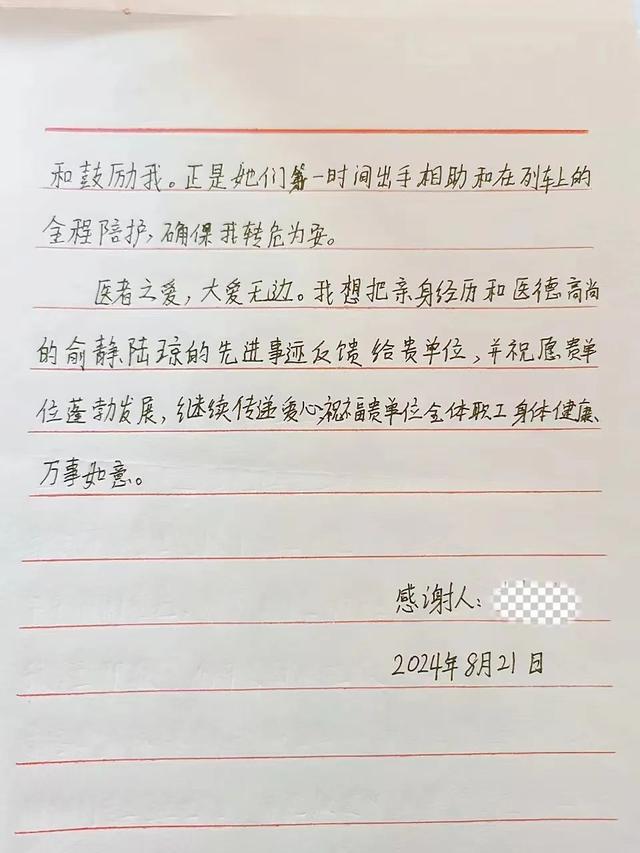 和鼓励我。正是她们第一时间出手相助和在列车上的
全程陪护，确保我转危为安。
医者之爱，大爱无边。我想把亲身经历和医德高尚
的俞静陆琼的先进事迹反馈给贵单位，并祝愿贵单
位蓬勃发展，继续传递爱心，祝福贵单位全体职工身体健康、
万事如意。
感谢人：
2024年8月21日